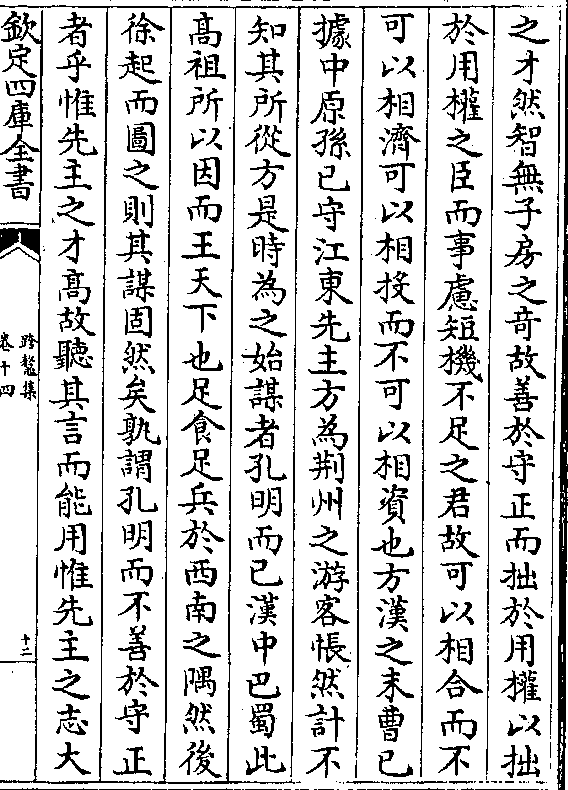 之才然智無子房之竒故善於守正而拙於用權以拙
於用權之臣而事慮短機不足之君故可以相合而不
可以相濟可以相授而不可以相資也方漢之末曹已
據中原孫已守江東先主方為荆州之游客悵然計不
知其所從方是時為之始謀者孔明而已漢中巴蜀此
髙祖所以因而王天下也足食足兵於西南之隅然後
徐起而圖之則其謀固然矣孰謂孔明而不善於守正
者乎惟先主之才髙故聽其言而能用惟先主之志大
欽定四庫全書
跨鼇集
卷十四
十二